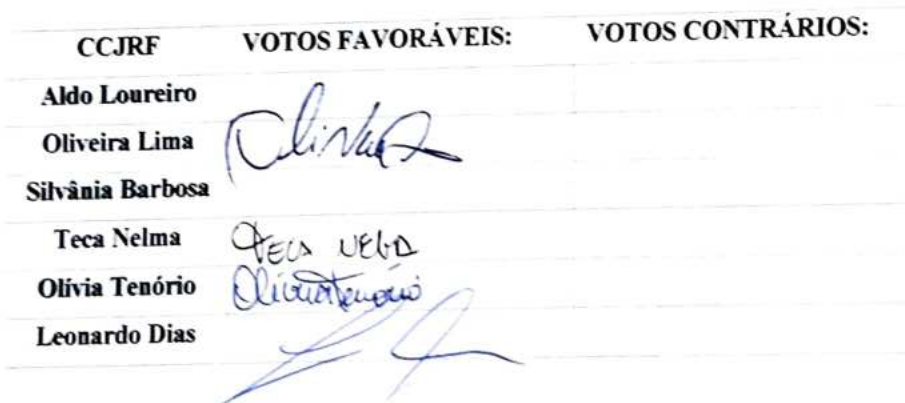 CCJRF VOTOS FAVORÁVEIS: VOTOS CONTRÁRIOS:
Aldo Loureiro
Oliveira Lima
Silvânia Barbosa
Teca Nelma Teca Nelma
Olívia Tenório Olívia Tenório
Leonardo Dias